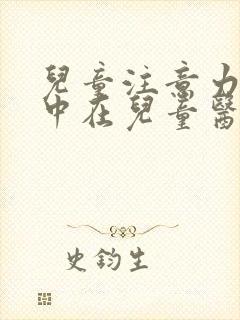 兒童注意力
中在兒童醫
史鈞生